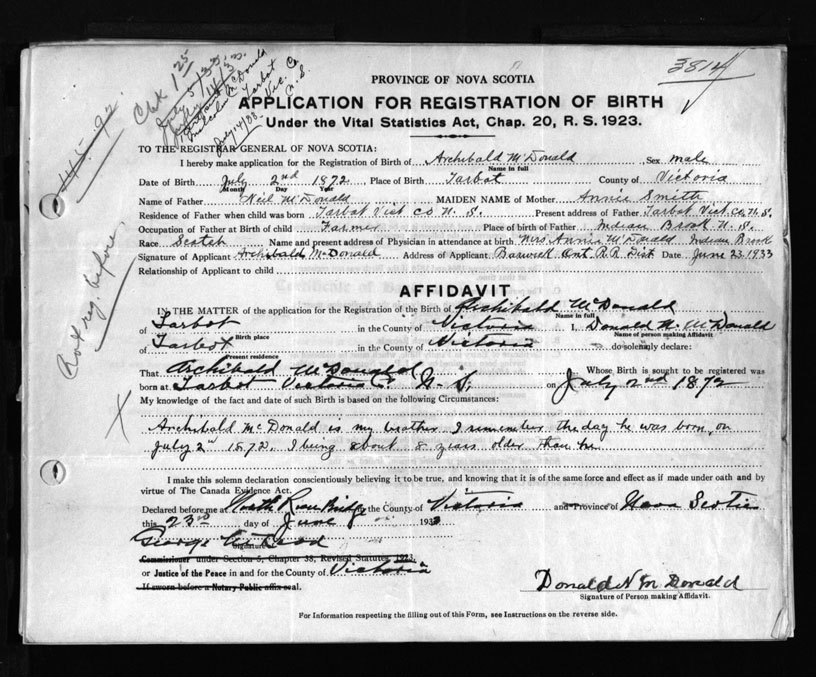 3814
Chk 1 25
PROVINCE OF NOVA SCOTIA
APPLICATION FOR REGISTRATION OF BIRTH
Under the Vital Statistics Act, Chap. 20, R. S. 1923.
TO THE REGISTRAR GENERAL OF NOVA SCOTIA:
I hereby make application for the Registration of Birth of Archibald McDonald Sex male
Name in full
Date of Birth July 2nd 1872 Place of Birth Tarbot County of Victoria
Month Day Year
Name of Father Neil McDonald MAIDEN NAME of Mother Annie Smith
Residence of Father when child was born Tarbot Vict Co N. S. Present address of Father Tarbot Vict. Co. N. S.
Occupation of Father at Birth of child Farmer Place of birth of Father Indian Brook N. S.
Race Scotch Name and present address of Physician in attendance at birth Mrs Annie McDonald Indian Brook
Signature of Applicant Archibald McDonald Address of Applicant Barwick Ont R.R. Dist Date June 23, 1933
Relationship of Applicant to child
Not reg. before
AFFIDAVIT
IN THE MATTER of the application for the Registration of the Birth of Archibald McDonald
Name in full
of Tarbot in the County of Victoria I, Donald N. McDonald
Birth place Name of person making Affidavit
of Tarbot in the County of Victoria do solemnly declare:
Present residence
That Archibald McDonald Whose Birth is sought to be registered was
born at Tarbot Victoria Co N. S. on July 2nd 1872
My knowledge of the fact and date of such Birth is based on the following Circumstances:
X
Archibald McDonald is my brother I remember the day he was born, on
July 2nd 1872, I being about 8 years older than he
I make this solemn declaration conscientiously believing it to be true, and knowing that it is of the same force and effect as if made under oath and by
virtue of The Canada Evidence Act.
Declared before me at North River Bridge in the County of Victoria and Province of Nova Scotia
this 23rd day of June 1933
George
Signature
Commissioner under Section 5, Chapter 38, Revised Statutes 1923,
or Justice of the Peace in and for the County of Victoria
If sworn before a Notary Public affix seal.
Donald N McDonald
Signature of Person making Affidavit.
For Information respecting the filling out of this Form, see Instructions on the reverse side.